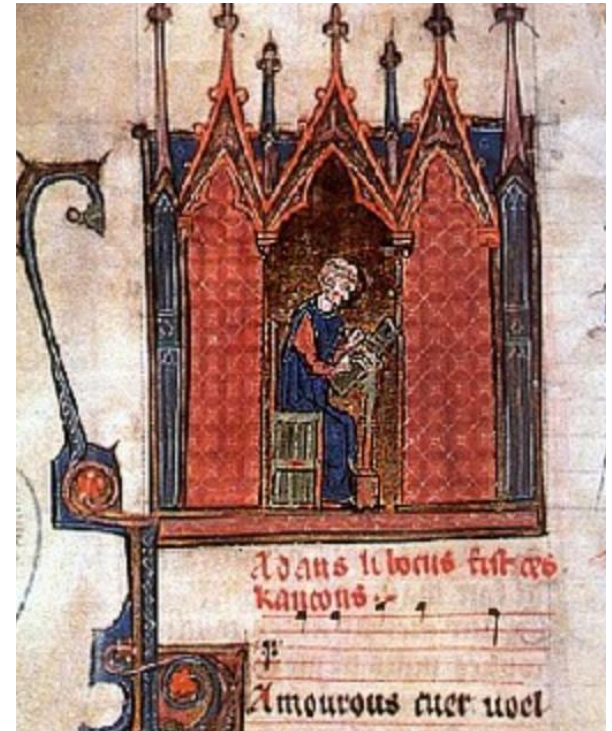 Adans li bocus fist ces
kancons
Amourous cuer uoel